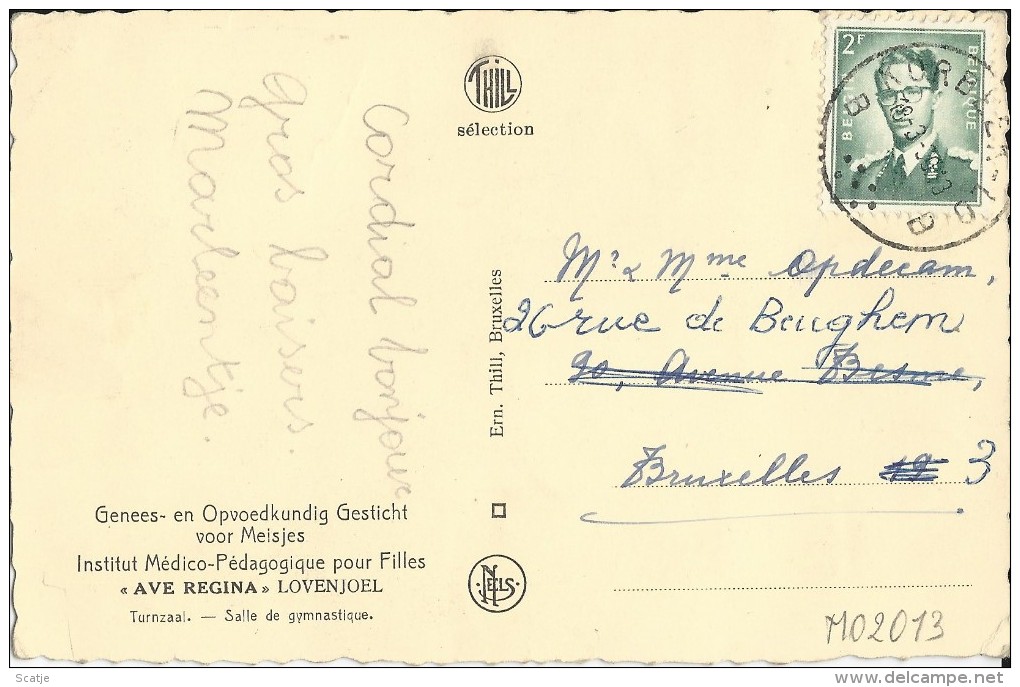 Cordial bonjour
Gros baisers.
Marleentje.
THILL
sélection
2F
BELGIQUE
KORBEEK-LO
B B
Mr & Mme Opdecam,
26 rue de Beughem
90, Avenue Besme,
Bruxelles 19 3
Ern. Thill, Bruxelles
Genees- en Opvoedkundig Gesticht
voor Meisjes
Institut Médico-Pédagogique pour Filles
« AVE REGINA » LOVENJOEL
Turnzaal. — Salle de gymnastique.
NELS
M02013
Scatje
delcampe.net